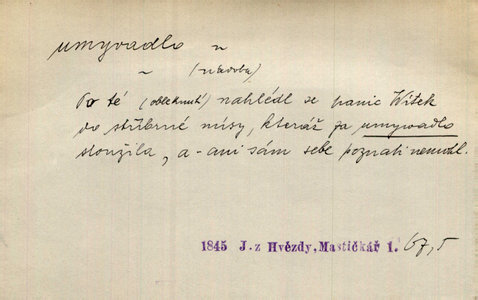 umyvadlo ~
~ (nádoba)
Po té (obleknutí) nahlédl se panic Witek
do stříbrné mísy, kteráž za umywadlo
sloužila, a - ani sám sebe poznati nemohl.
1845 J. z Hvězdy, Mastičkář 1. 67,5